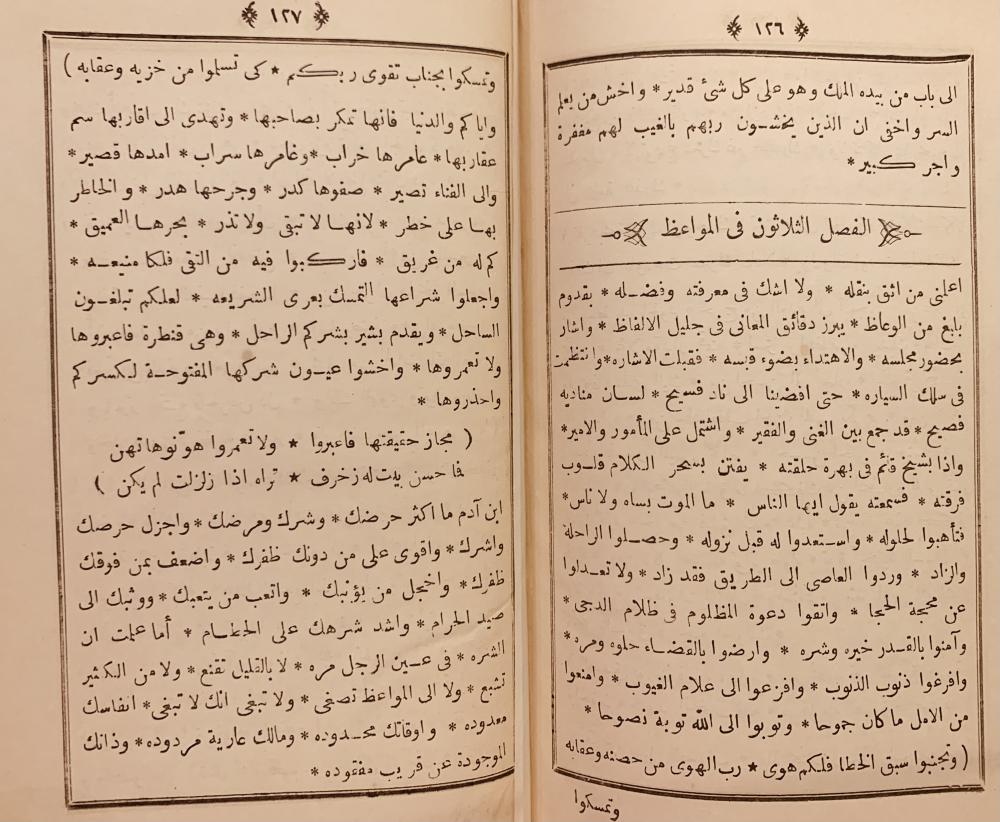 ١٢٦
الى باب من بيده الملك وهو على كل شئ قدير * واخش من يعلم
السر واخفى ان الذين يخشون ربهم بالغيب لهم مغفرة
واجر كبير *
الفصل الثلاثون فى المواعظ
اعلمنى من اثق بنقله * ولا اشك فى معرفته وفضله * بقدوم
بليغ من الوعاظ * يبرز دقائق المعانى فى جليل الالفاظ * واشار
بحضور مجلسه * والاهتداء بضوء قبسه * فقبلت الاشاره * وانتظمت
فى سلك السياره * حتى افضينا الى ناد فسيح * لسان مناديه
فصيح * قد جمع بين الغنى والفقير * واشتمل على المأمور والامير *
واذا بشيخ قائم فى بهرة حلقته * يفتن بسحر الكلام قلوب
فرقته * فسمعته يقول ايها الناس * ما الموت بساه ولا ناس *
فتأهبوا لحلوله * واستعدوا له قبل نزوله * وحصلوا الراحلة
والزاد * وردوا العاصى الى الطريق فقد زاد * ولا تعدلوا
عن محجة الحجا * واتقوا دعوة المظلوم فى ظلام الدجى *
وآمنوا بالقدر خيره وشره * وارضوا بالقضاء حلوه ومره *
وافرغوا ذنوب الذنوب * وافزعوا الى علام الغيوب * وامنعوا
من الامل ما كان جموحا * وتوبوا الى الله توبة نصوحا *
( وتجنبوا سبق الخطا فلكم هوى * رب الهوى من حصنه وعقابه
وتمسكوا
١٢٧
وتمسكوا بجناب تقوى ربكم * كى تسلموا من خزيه وعقابه )
واياكم والدنيا فانها تمكر بصاحبها * وتهدى الى اقاربها سم
عقاربها * عامرها خراب * وغامرها سراب * امدها قصير *
والى الفناء تصير * صفوها كدر * وجرحها هدر * والخاطر
بها على خطر * لانها لا تبقى ولا تذر * بحرها العميق *
كم له من غريق * فاركبوا فيه من التقى فلكا منيعه *
واجعلوا شراعها التمسك بعرى الشريعه * لعلكم تبلغون
الساحل * ويقدم بشير بشركم الراحل * وهى قنطرة فاعبروها
ولا تعمروها * واخشوا عيون شركها المفتوحة لكسركم
واحذروها *
( مجاز حقيقتها فاعبروا * ولا تعمروا هوّنوها تهن
فما حسن بيت له زخرف * تراه اذا زلزلت لم يكن )
ابن آدم ما اكثر حرضك * وشرك ومرضك * واجزل حرصك
واشرك * واقوى على من دونك ظفرك * واضعف بمن فوقك
ظفرك * واخجل من يؤنبك * واتعب من يتعبك * ووثبك الى
صيد الحرام * واشد شرهك على الحطام * أما علمت ان
الشره * فى عين الرجل مره * لا بالقليل تقنع * ولا من الكثير
تشبع * ولا الى المواعظ تصغى * ولا تبغى انك لا تبغى * انفاسك
معدوده * واوقاتك محدوده * ومالك عارية مردوده * وذاتك
الموجودة عن قريب مفقوده *